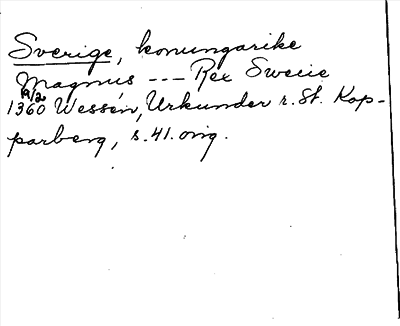 Sverige, konungarike
Magnus --- Rex Swecie
19/2
1360 Wessén, Urkunder r. St. Kop-
parberg, s.41. orig.